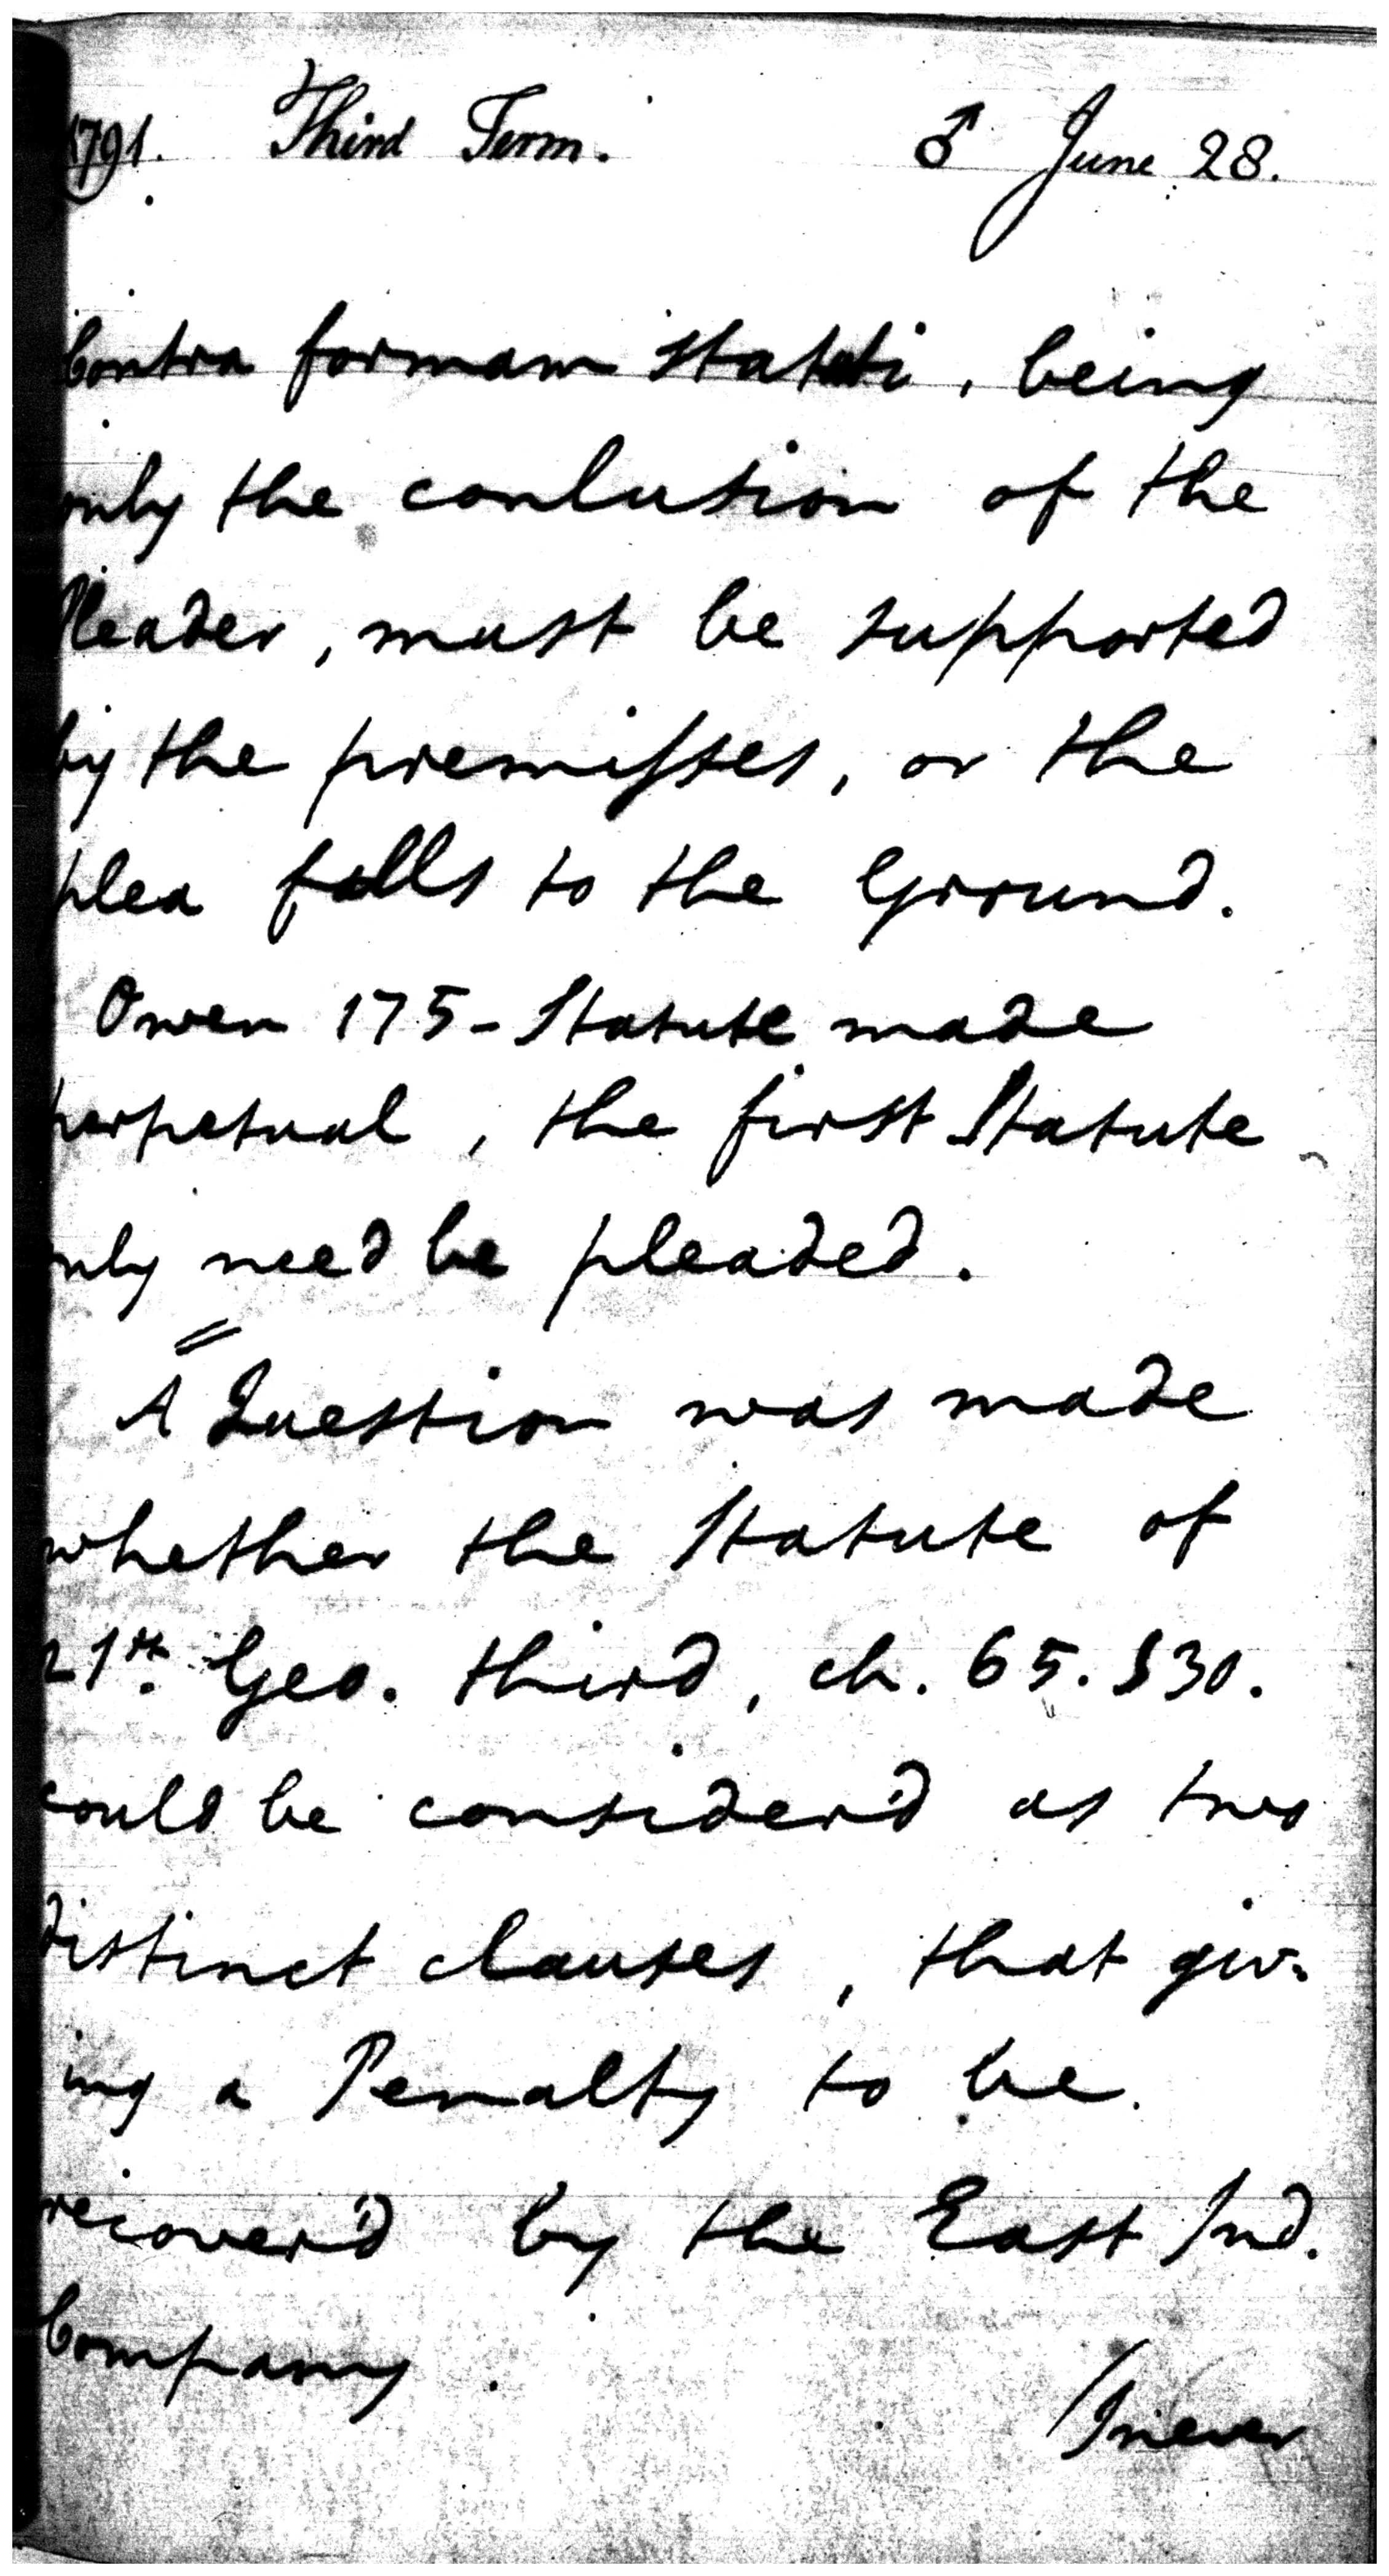 1791. Third Term. ♂ June 28.
Contra formam statuti, being
only the conlusion of the
Pleader, must be supported
by the premisses, or the
plea falls to the Ground.
Owen 175 - Statute made
perpetual, the first Statute
only need be pleaded.
A Question was made
whether the Statute of
21st. Geo. third, ch. 65. S 30.
could be consider'd as two
distinct clauses, that giv-
ing a Penalty to be
recover'd by the East Ind.
Company.